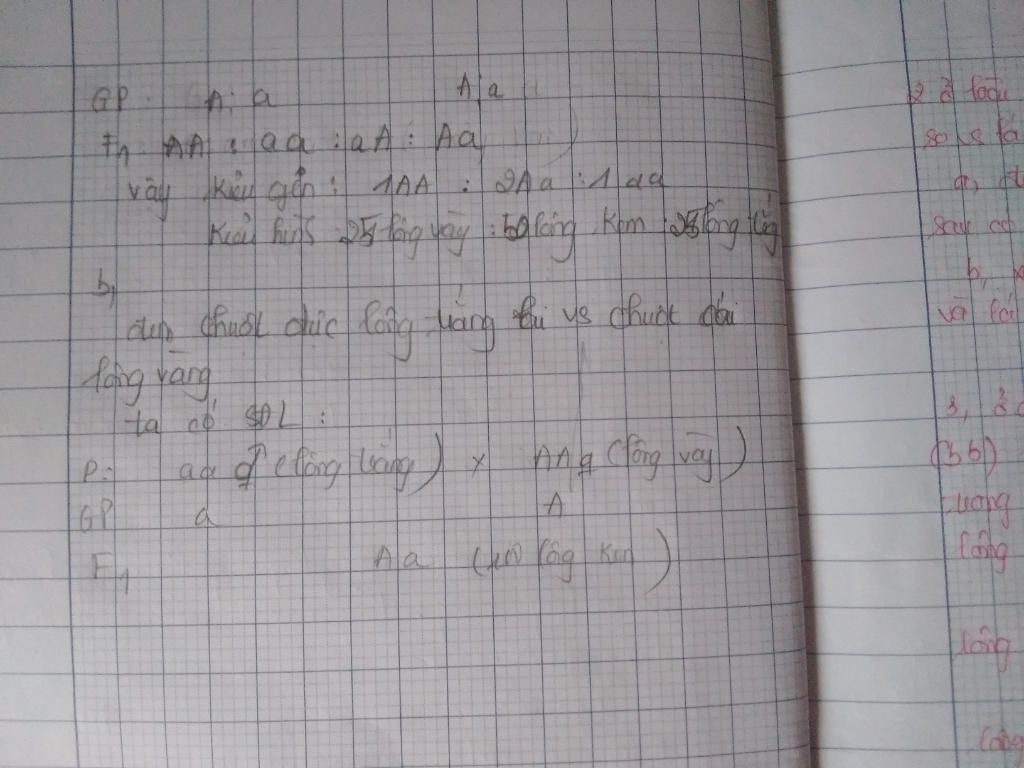 GP A; a A; a
F1 AA : aa : aA : Aa
vậy kiểu gen : 1AA : 2Aa : 1aa
kiểu hình : 25 lông vàg : 50 lông kem : 25 lông
b,
chuột đực lông trắng vs chuột cái
lông vàng
ta có SĐL :
P: aa ♂ (lông trắng) x AA ♀ (lông vàg)
GP a A
F1 Aa (lôg kem)
2 ở
so vs
a,
sau
b,
và
3, ở
(bb)
lông
lông
lông